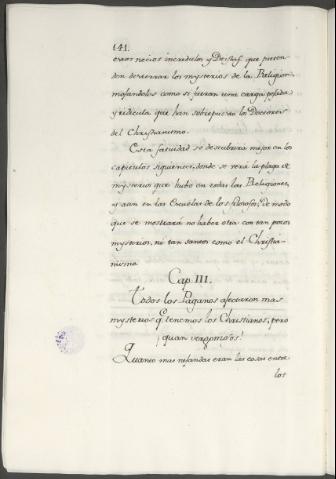 141.
estos necios incredulos y Deistas que preten-
den desterrar los mysterios de la Religion
mofandolos como si fueran una carga pesada
y ridicula que han sobrepuesto los Doctores
del Christianismo.
Esta fatuidad se descubrirá mejor en los
capitulos siguientes, donde se verá la plaga de
mysterios que hubo en todas las Religiones,
y aun en las Escuelas de los filosofos; de modo
que se mostrará no haber otra con tan pocos
mysterios, ni tan santos como el Christia-
nismo.
Cap. III.
Todos los Paganos afectaron mas
mysterios q.e tenemos los Christianos, pero
¡quan vergonzosos!
Quanto mas nefandas eran las cosas entre
los